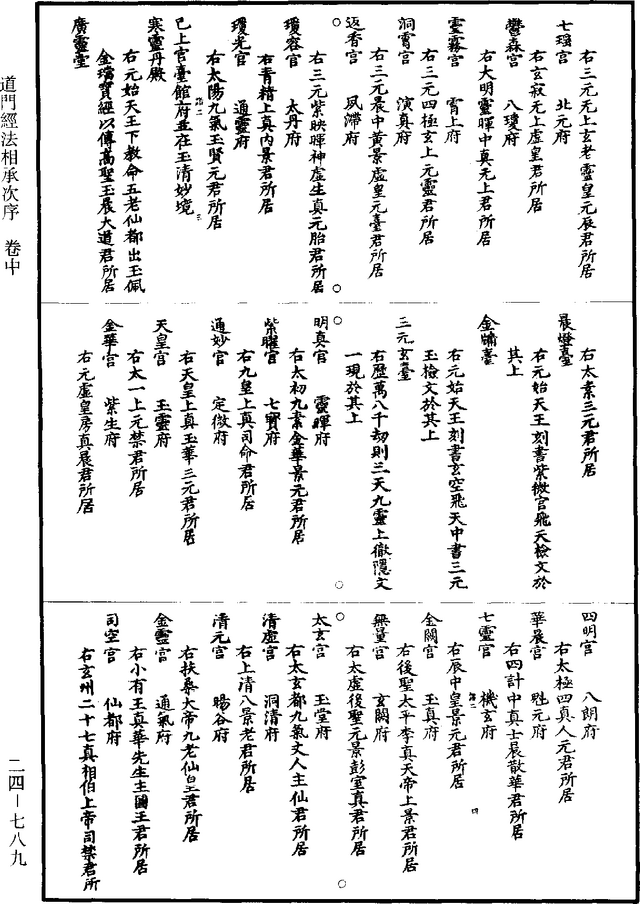 道門經法相承次序　卷中
二四－七八九
右三元无上玄老靈皇元晨君所居
七瑶宫　北元府
右玄寂无上虚皇君所居
欝森宫　八瓊府
右大明靈暉中真无上君所居
雲霧宫　霄上府
右三元四極玄上元靈君所居
洞霄宫　演真府
右三元晨中黄景虚皇元臺君所居
返香宫　夙滯府
右三元紫映暉神虚生真元胎君所居
瓊容宫　太丹府
右青精上真内景君所居
瓊光宫　通靈府
右太陽九氣玉賢元君所居
已上宫臺館府並在玉清妙境
寒靈丹殿
右元始天王下教命五老仙都出玉佩
金璫寳經以傳高聖玉晨大道君所居
廣靈堂
右太素三元君所居
晨燈臺
右元始天王刻書紫微宫飛天檢文於
其上
金墉臺
右元始天王刻書玄空飛天中書三元
玉檢文於其上
三元玄臺
右歷萬八千劫則三天九靈上徹隱文
一現於其上
明真宫　靈暉府
右太初九素金華景元君所居
紫曜宫　七寳府
右九皇上真司命君所居
通妙宫　定微府
右天皇上真玉華三元君所居
天皇宫　玉靈府
右太一上元禁君所居
金華宫　紫生府
右元虚皇房真晨君所居
四明宫　八朗府
右太極四真人元君所居
華晨宫　魁元府
右四計中真士晨散華君所居
七靈宫　機玄府
右辰中皇景元君所居
金闕宫　玉真府
右後聖太平李真天帝上景君所居
無量宫　玄闕府
右太虚後聖元景彭室真君所居
太玄宫　玉堂府
右太玄都九氣丈人主仙君所居
清虚宫　洞清府
右上清八景老君所居
清元宫　暘谷府
右扶桑大帝九老仙皇君所居
金靈宫　通氣府
右小有王真華先生主圖王君所居
司空宫　仙都府
右玄州二十七真相伯上帝司禁君所